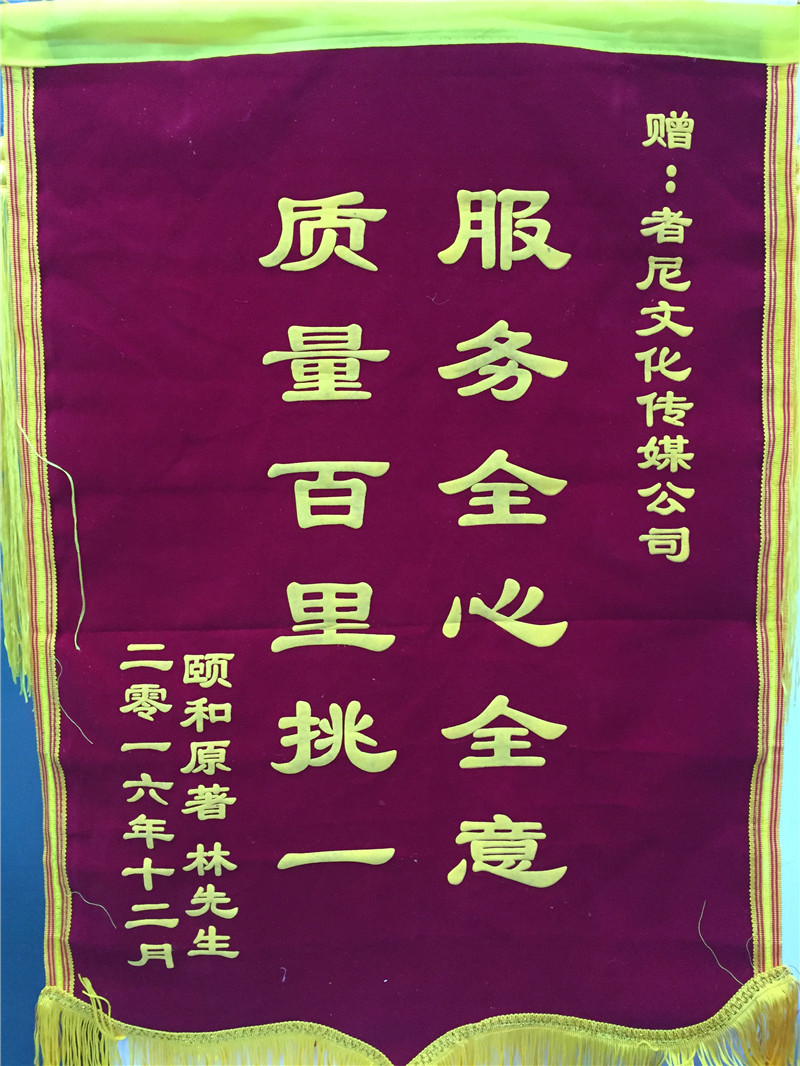 赠：者尼文化传媒公司
服务全心全意
质量百里挑一
颐和原著 林先生
二零一六年十二月